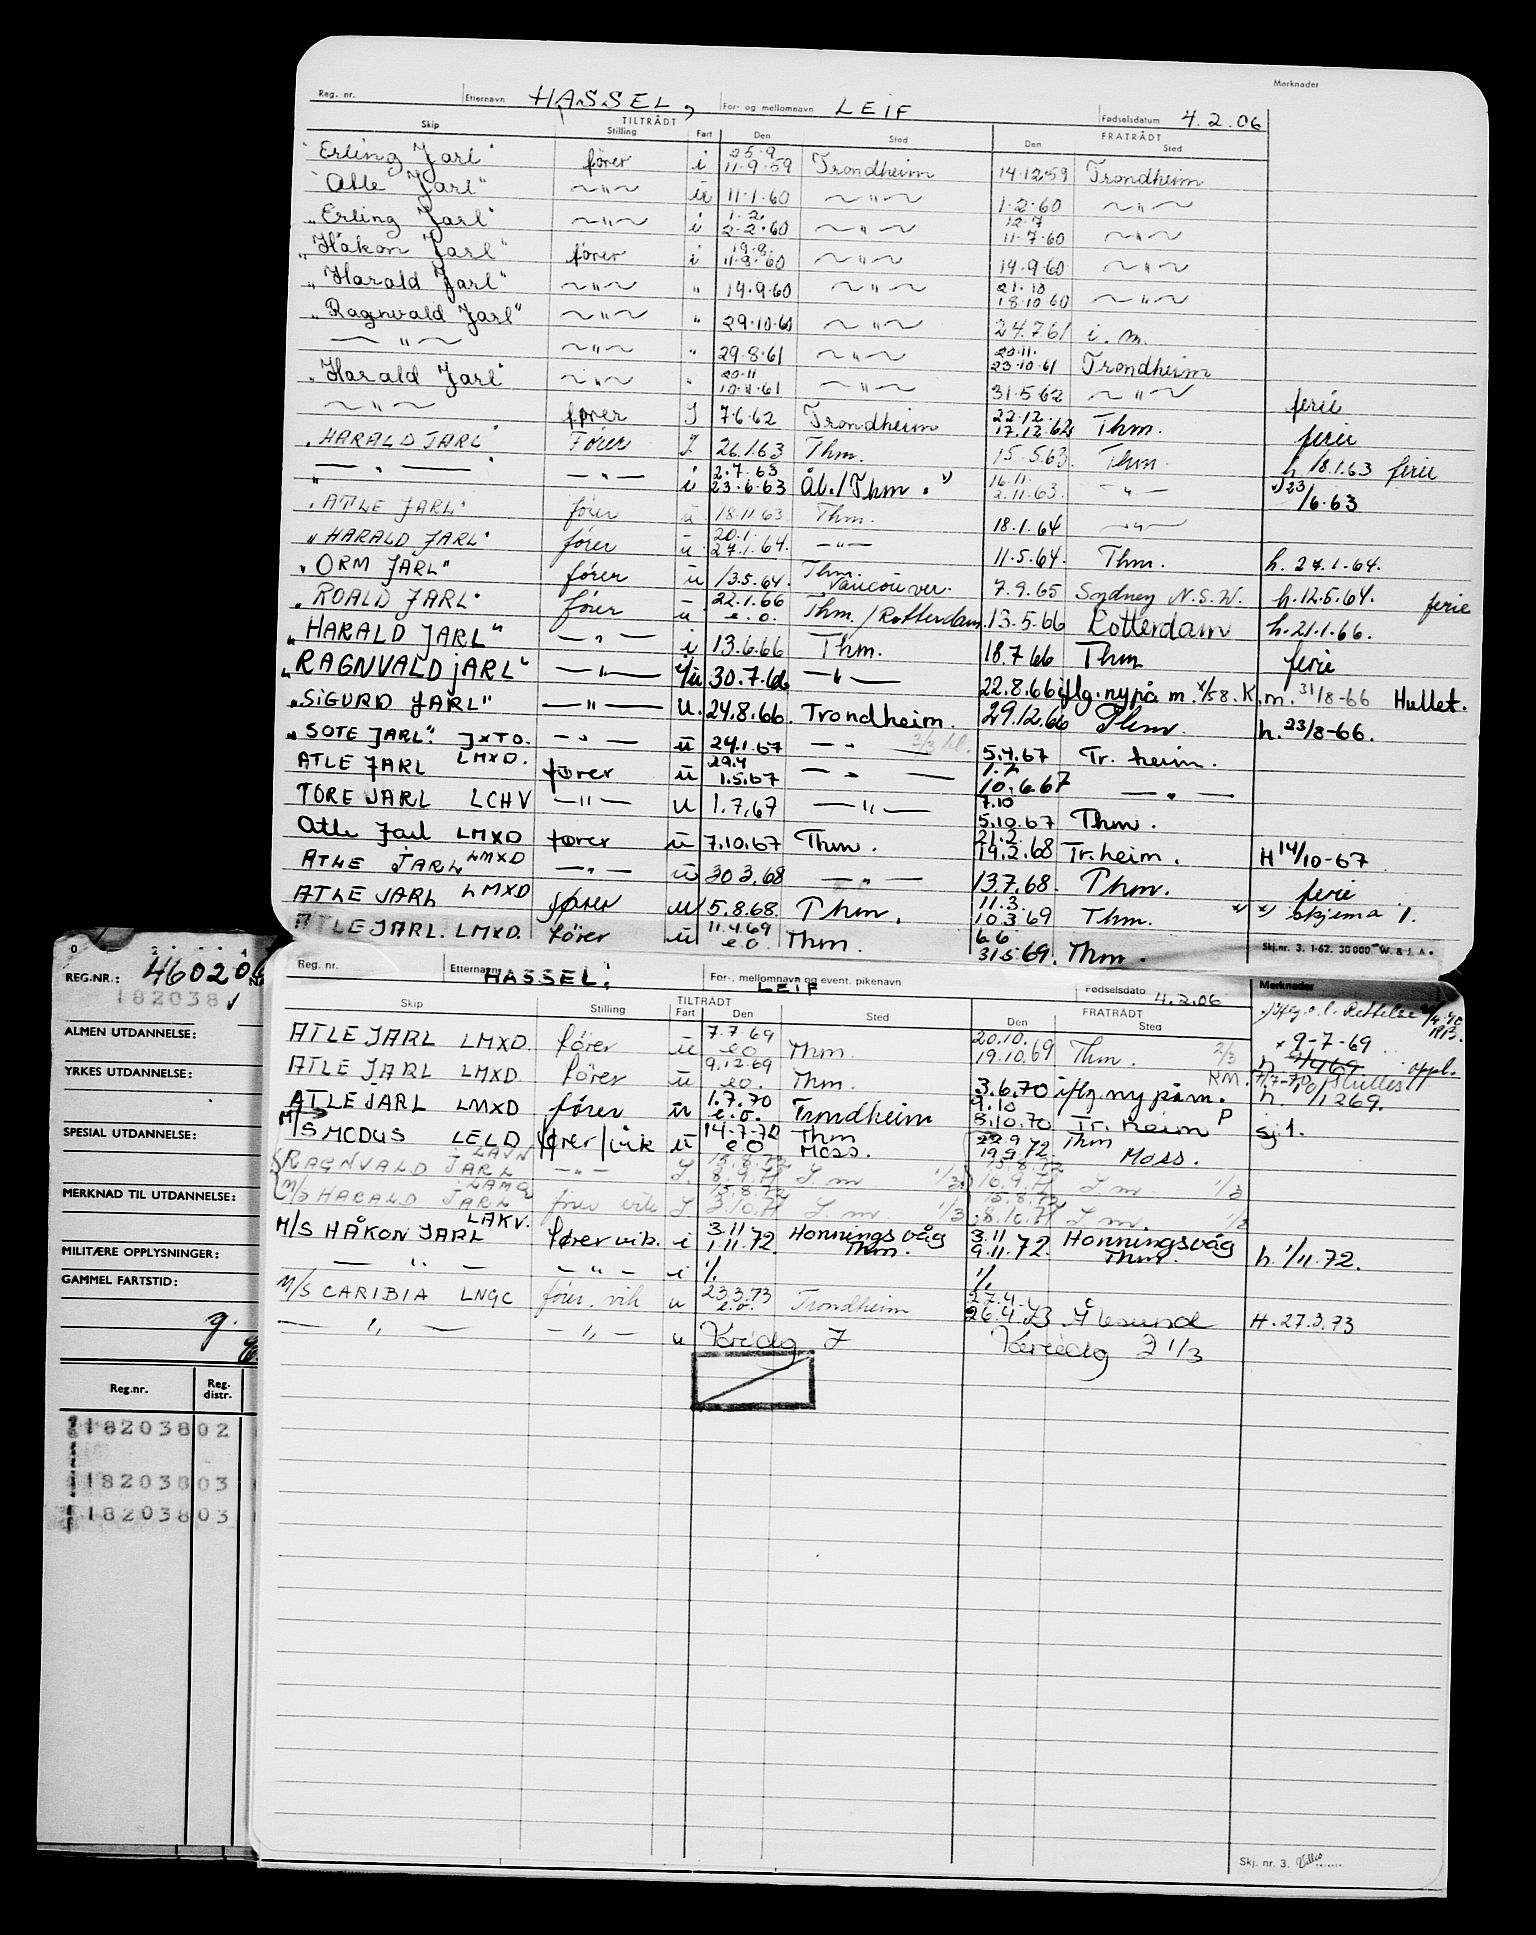 Merknader
Reg. nr. Etternavn HASSEL, For- og mellomnavn LEIF Fødselsdatum 4.2.06
TILTRÅDT FRATRÅDT
Skip Stilling Fart Den Sted Den Sted
"Erling Jarl" fører i 25.9 11.9.59 Trondheim 14.12.59 Trondheim
"Atle Jarl" ~"~ u 11.1.60 ~"~ 1.2.60 ~"~
"Erling Jarl" ~"~ i 1.2. 2.2.60 ~"~ 12.7 11.7.60 ~"~
"Håkon Jarl" fører i 19.8. 11.8.60 ~"~ 14.9.60 ~"~
"Harald Jarl" ~"~ " 14.9.60 ~"~ 21.10 18.10.60 ~"~
"Ragnvald Jarl" ~"~ " 29.10.60 ~"~ 24.7.61 i.m.
~"~ ~"~ " 29.8.61 ~"~ 20.11. 23.10.61 Trondheim
"Harald Jarl" ~"~ " 20.11 10.11.61 ~"~ 31.5.62 ~"~ ferie
~"~ fører I 7.6.62 Trondheim 22.12. 17.12.62 Thm. ferie
"HARALD JARL" Fører I 26.1.63 Thm. 15.5.63. Thm. h. 18.1.63 ferie
— " — — " — i 2.7.63 23.6.63 Ål./Thm. x) 16.11. 2.11.63. — " — x) 23/6.63
"ATLE JARL" fører u 18.11.63 Thm. 18.1.64 — " —
"HARALD JARL" fører u 20.1. 27.1.64. — " — 11.5.64. Thm. h. 27.1.64.
"ORM JARL" fører u 13.5.64. Thm. Vancouver. 7.9.65 Sydney N.S.W. h. 12.5.64. ferie
"ROALD JARL" fører u 22.1.66 e.o. Thm./Rotterdam. 13.5.66 Rotterdam h. 21.1.66.
"HARALD JARL" — " — i 13.6.66 Thm. 18.7.66 Thm ferie
"RAGNVALD JARL" — " — i/u 30.7.66 — " — 22.8.66 iflg. ny på m. K.m. 31/8-66 Hullet.
"SIGURD JARL" — " — u. 24.8.66. Trondheim. 29.12.66 Thm h. 23/8-66.
"SOTE JARL". JXTO. — " — u 24.1.67 — " — 5.4.67 Tr.heim.
ATLE JARL LMXD. fører u 29.4 1.5.67 — " — 1.7 10.6.67 — " —
TORE JARL LCHV — " — u 1.7.67 — " — 7.10 5.10.67 Thm.
Atle Jarl LMXD fører u 7.10.67 Thm. 21.2. 19.2.68 Tr.heim. H 14/10-67
ATLE JARL LMXD — " — u 30.3.68 — " — 13.7.68. Thm. ferie
ATLE JARL LMXD fører u 5.8.68. Thm. 11.3. 10.3.69 Thm. x) x) skjema 1.
ATLE JARL. LMXD. fører u 11.4.69 e.o. Thm. 6.6 31.5.69. Thm.
Skj.nr. 3. 1-62. 30 000 W. & J. A.
Reg. nr. Etternavn HASSEL: For-, mellomnavn og event. pikenavn LEIF Fødselsdato 4.2.06 Merknader
TILTRÅDT FRATRÅDT
Skip Stilling Fart Den Sted Den Sted
ATLE JARL LMXD. fører u 7.7.69 e.o Thm. 20.10. 19.10.69 Thm. 2/3 x 9-7-69
ATLE JARL LMXD. fører u 9.12.69 e.o. Thm. 3.6.70 iflg ny på m. h. 1269.
ATLE JARL LMXD fører u 1.7.70 e.o. Trondheim 9.10 8.10.70 Tr.heim P sj 1.
M/S MODUS LELD fører/vik u 14.7.72 e.o Thm Moss. 22.9 19.9.72. Thm Moss.
RAGNVALD JARL LAVN — " — I. 15.8.72 8.9.71 I.m 1/3 15.8.72 10.9.71 I m 1/3
M/S HARALD JARL LAMQ fører vik I 15.8.72 3.10.71 I. m. 1/3 15.8.72 8.10.71 I m. 1/3
M/S HÅKON JARL LAKV. fører vik. i 3.11 1.11.72. Honningsvåg Thm. 3.11 9.11.72. Honningsvåg Thm. h. 1/11.72.
— " — — " — i
M/S CARIBIA LNGC fører. vik u 23.3.73 e.o. Trondheim 27.4. 26.4.73 Ålesund H. 27.3.73
— " — — " — u
Skj. nr. 3.
REG.NR.: 460206
182038
ALMEN UTDANNELSE:
YRKES UTDANNELSE:
SPESIAL UTDANNELSE:
MERKNAD TIL UTDANNELSE:
MILITÆRE OPPLYSNINGER:
GAMMEL FARTSTID:
Reg.nr. Reg. distr.
18203802
18203803
18203803